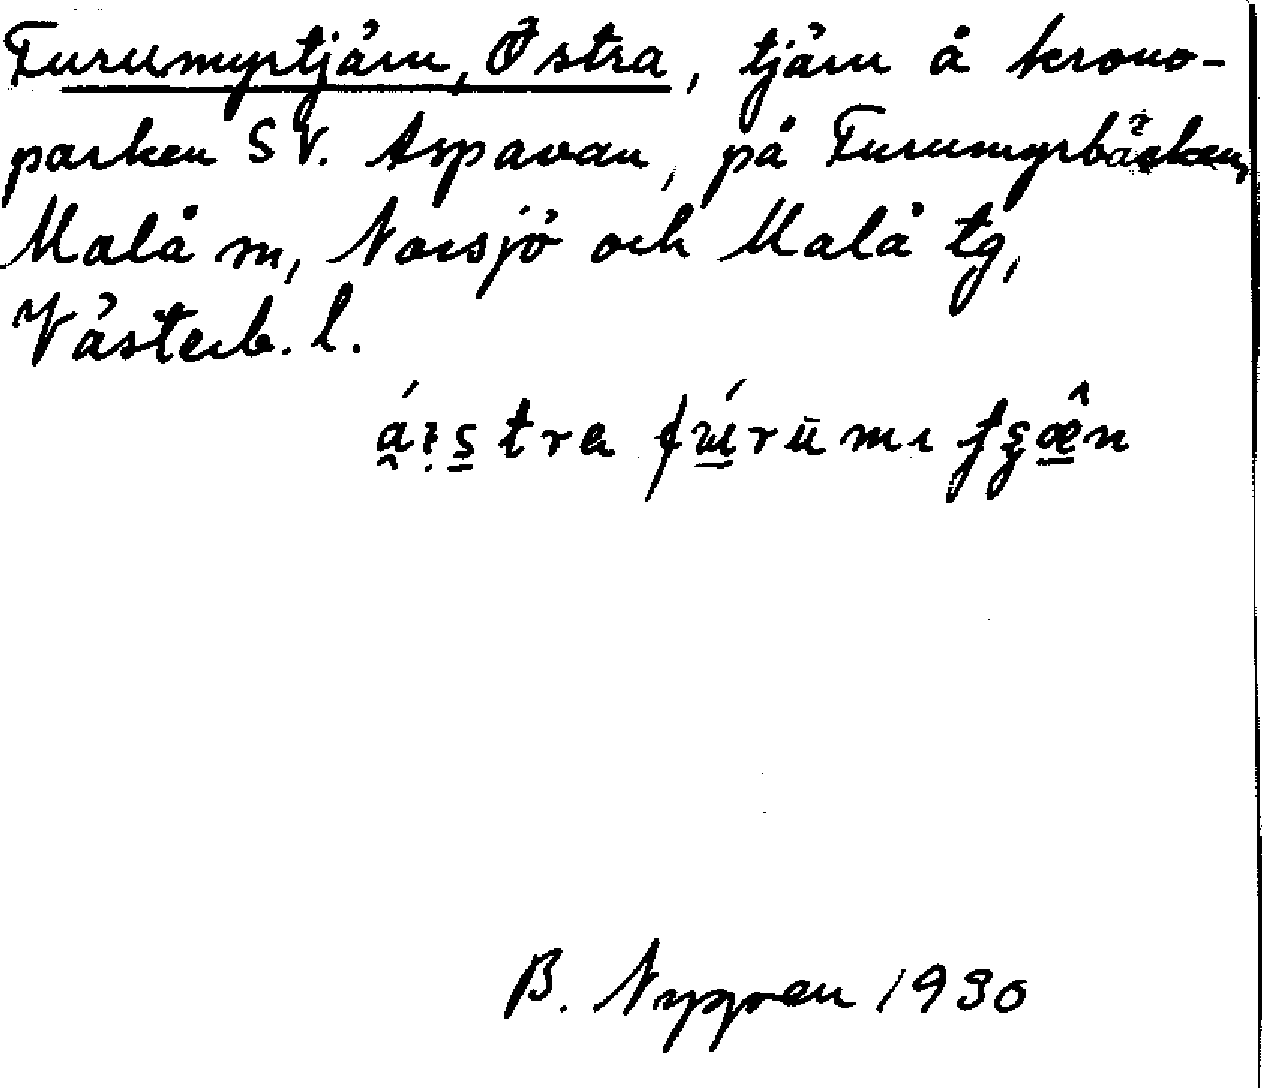 Furumyrtjärn, Östra, tjärn å krono-
parken SV. Aspavan, på Furumyrbäcken,
Malå sn, Norsjö och Malå tg,
Västerb. l.
B. Nygren 1930